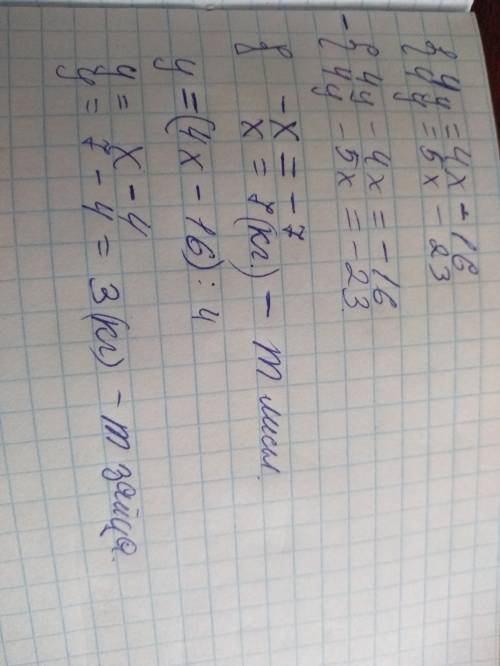 { 4y = 4x - 16
4y = 5x - 23
- { 4y - 4x = -16
4y - 5x = -23.
{ -x = -7
x = 7 (кг.) - m лисы.
y = (4x - 16) : 4
y = x - 4
y = 7 - 4 = 3 (кг) - m зайца.